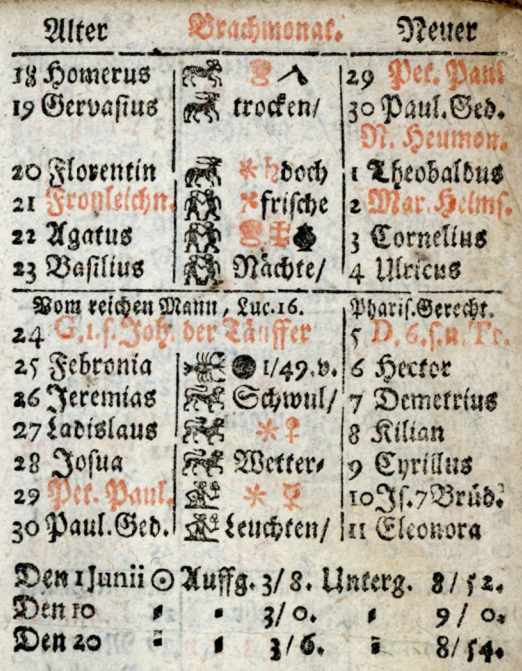 Alter Brachmonat. Neuer
18 Homerus 29 Pet. Paul
19 Gervasius trocken/ 30 Paul. Ged.
N. Heumon.
20 Florentin doch 1 Theobaldus
21 Fronleichn. frische 2 Mar. Heims.
22 Agatus 3 Cornelius
23 Basilius Nächte/ 4 Ulricus
Vom reichen Mann, Luc. 16. Pharis. Gerecht.
24 G. 1. s. Joh. der Täuffer 5 D. 6. s. n. Tr.
25 Febronia 1/49. v. 6 Hector
26 Jeremias Schwul/ 7 Demetrius
27 Ladislaus 8 Kilian
28 Josua Wetter- 9 Cyrillus
29 Pet. Paul. 10 Js. 7 Brüd.
30 Paul. Ged. Leuchten/ 11 Eleonora
Den 1 Junii ☉ Auffg. 3/8. Unterg. 8/52.
Den 10 3/0. 9/0.
Den 20 3/6. 8/54.